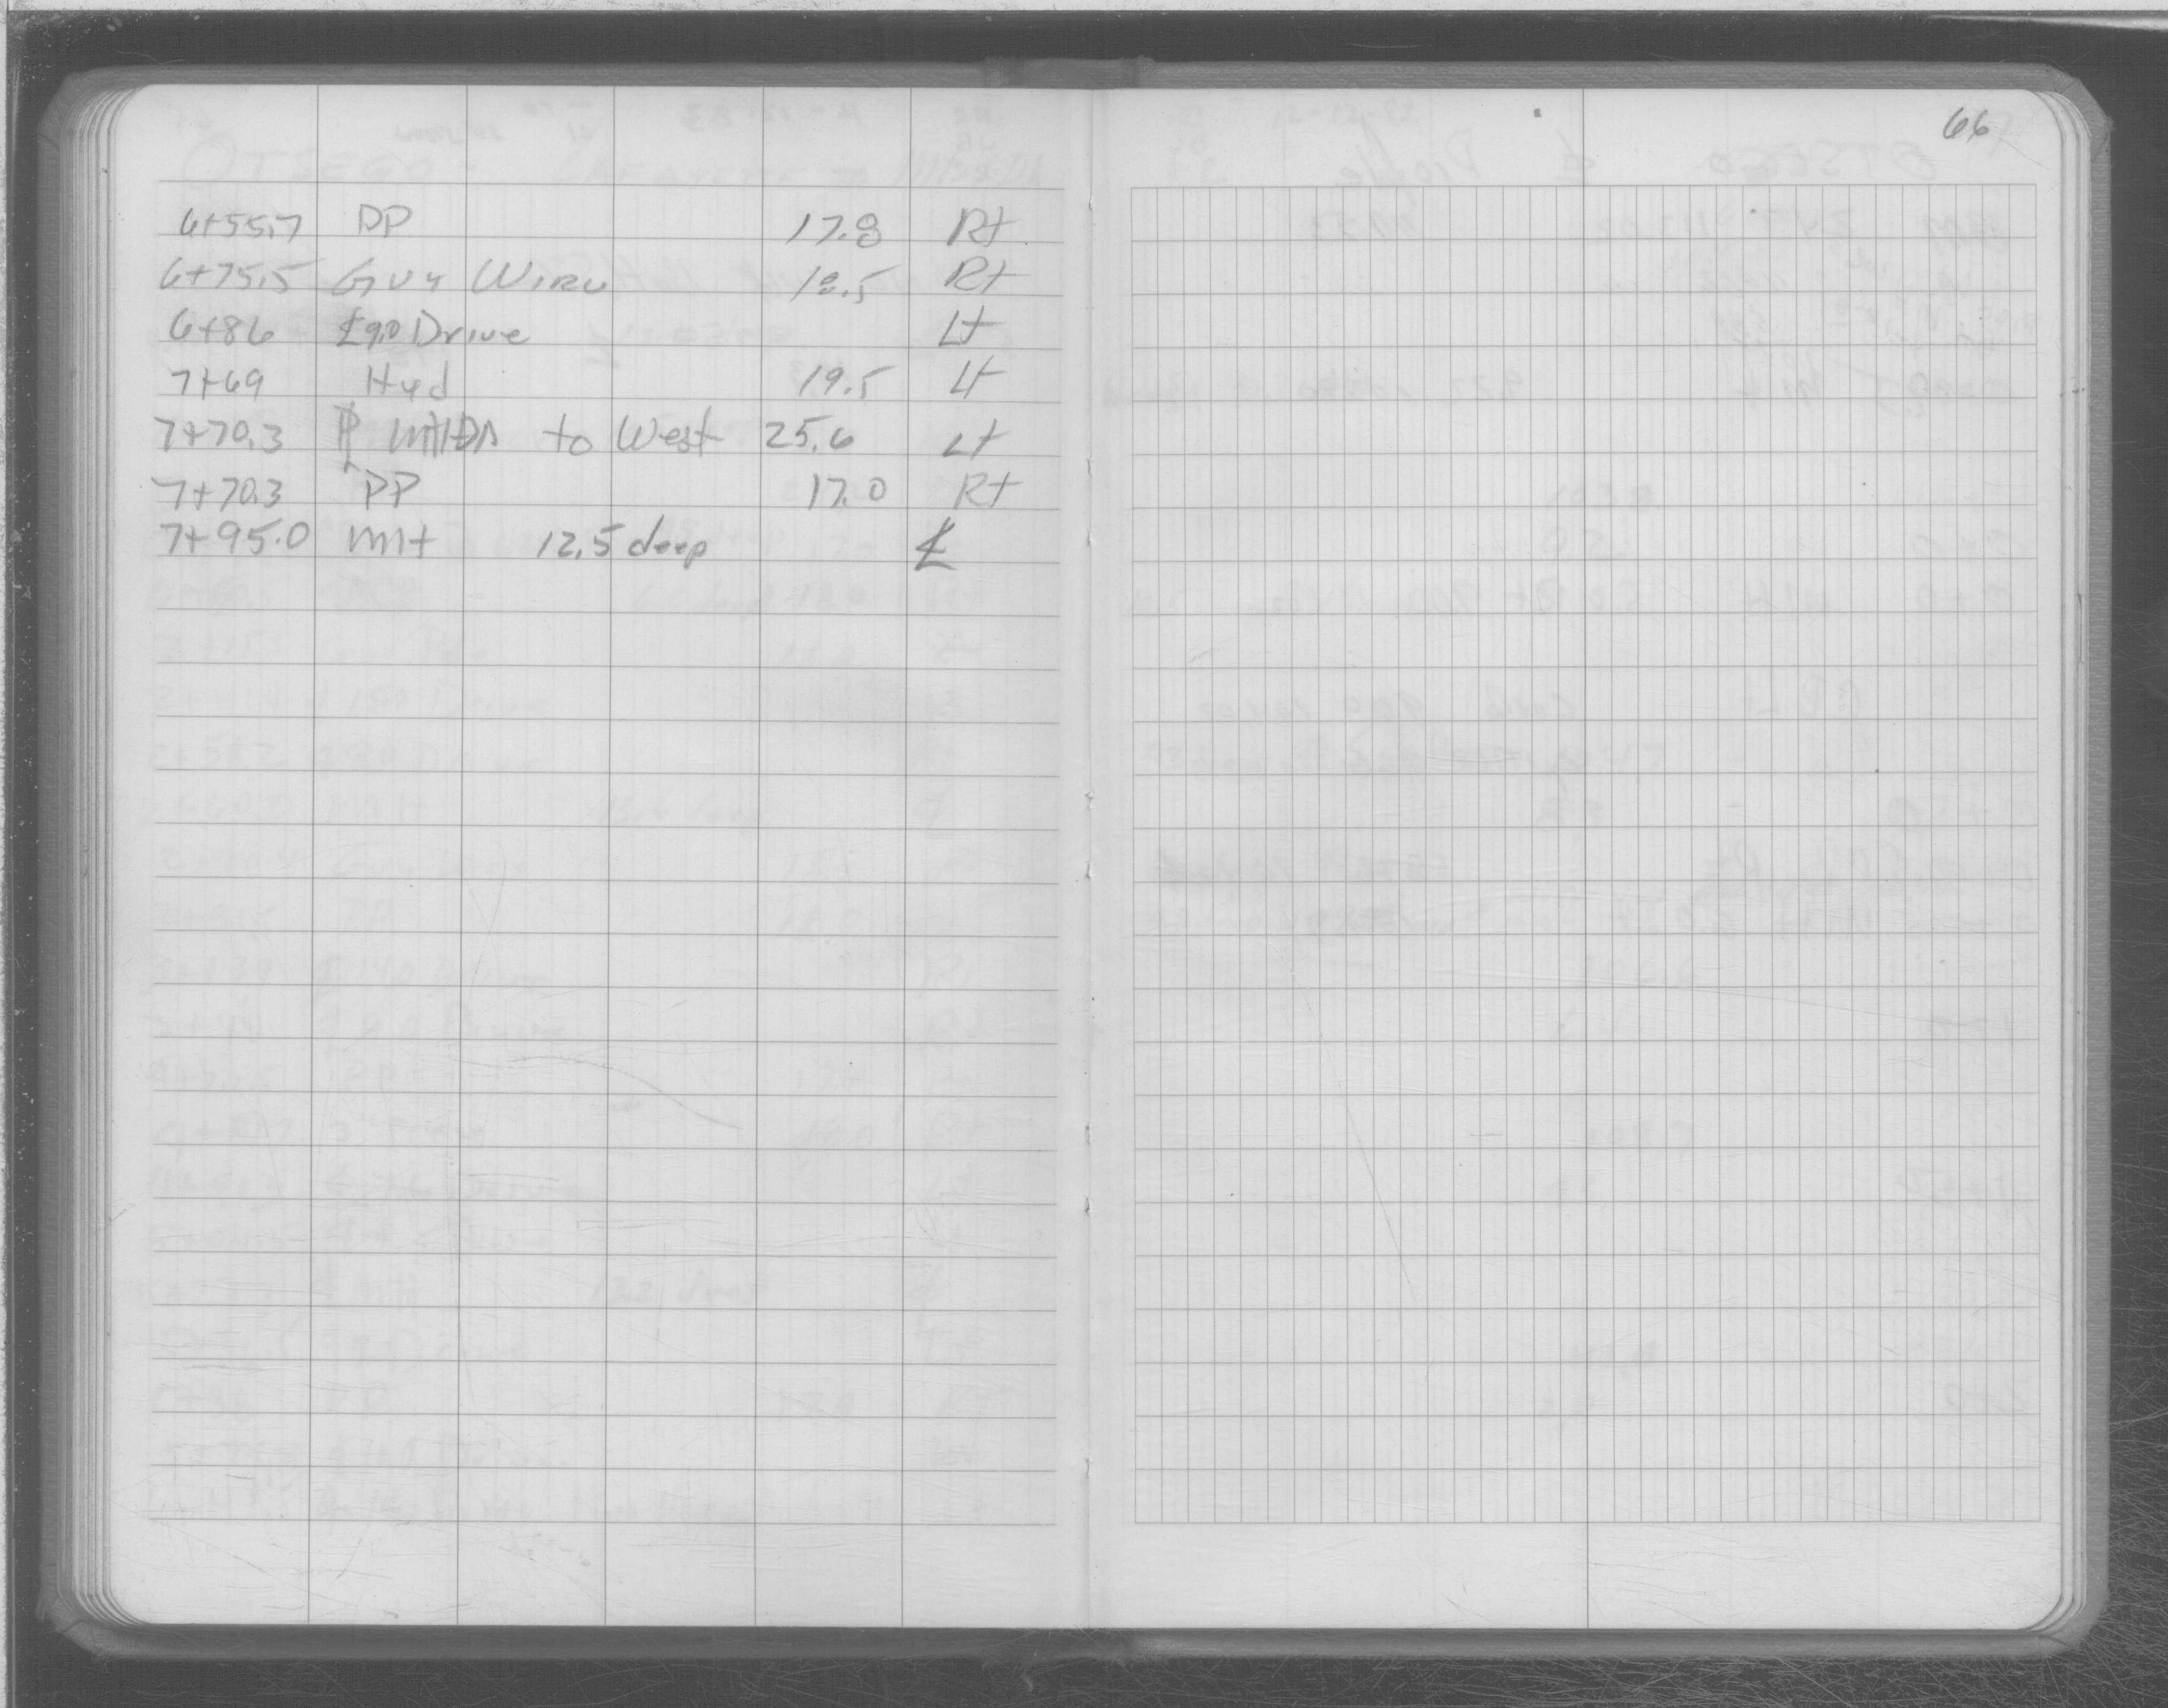 66
6+55.7 PP 17.8 Rt
6+75.5 Guy Wire 18.5 Rt
6+86 ℄ 9.0 Drive Lt
7+69 Hyd 19.5 Lt
7+70.3 to West 25.6 Lt
7+70.3 PP 17.0 Rt
7+95.0 MH 12.5 deep ℄